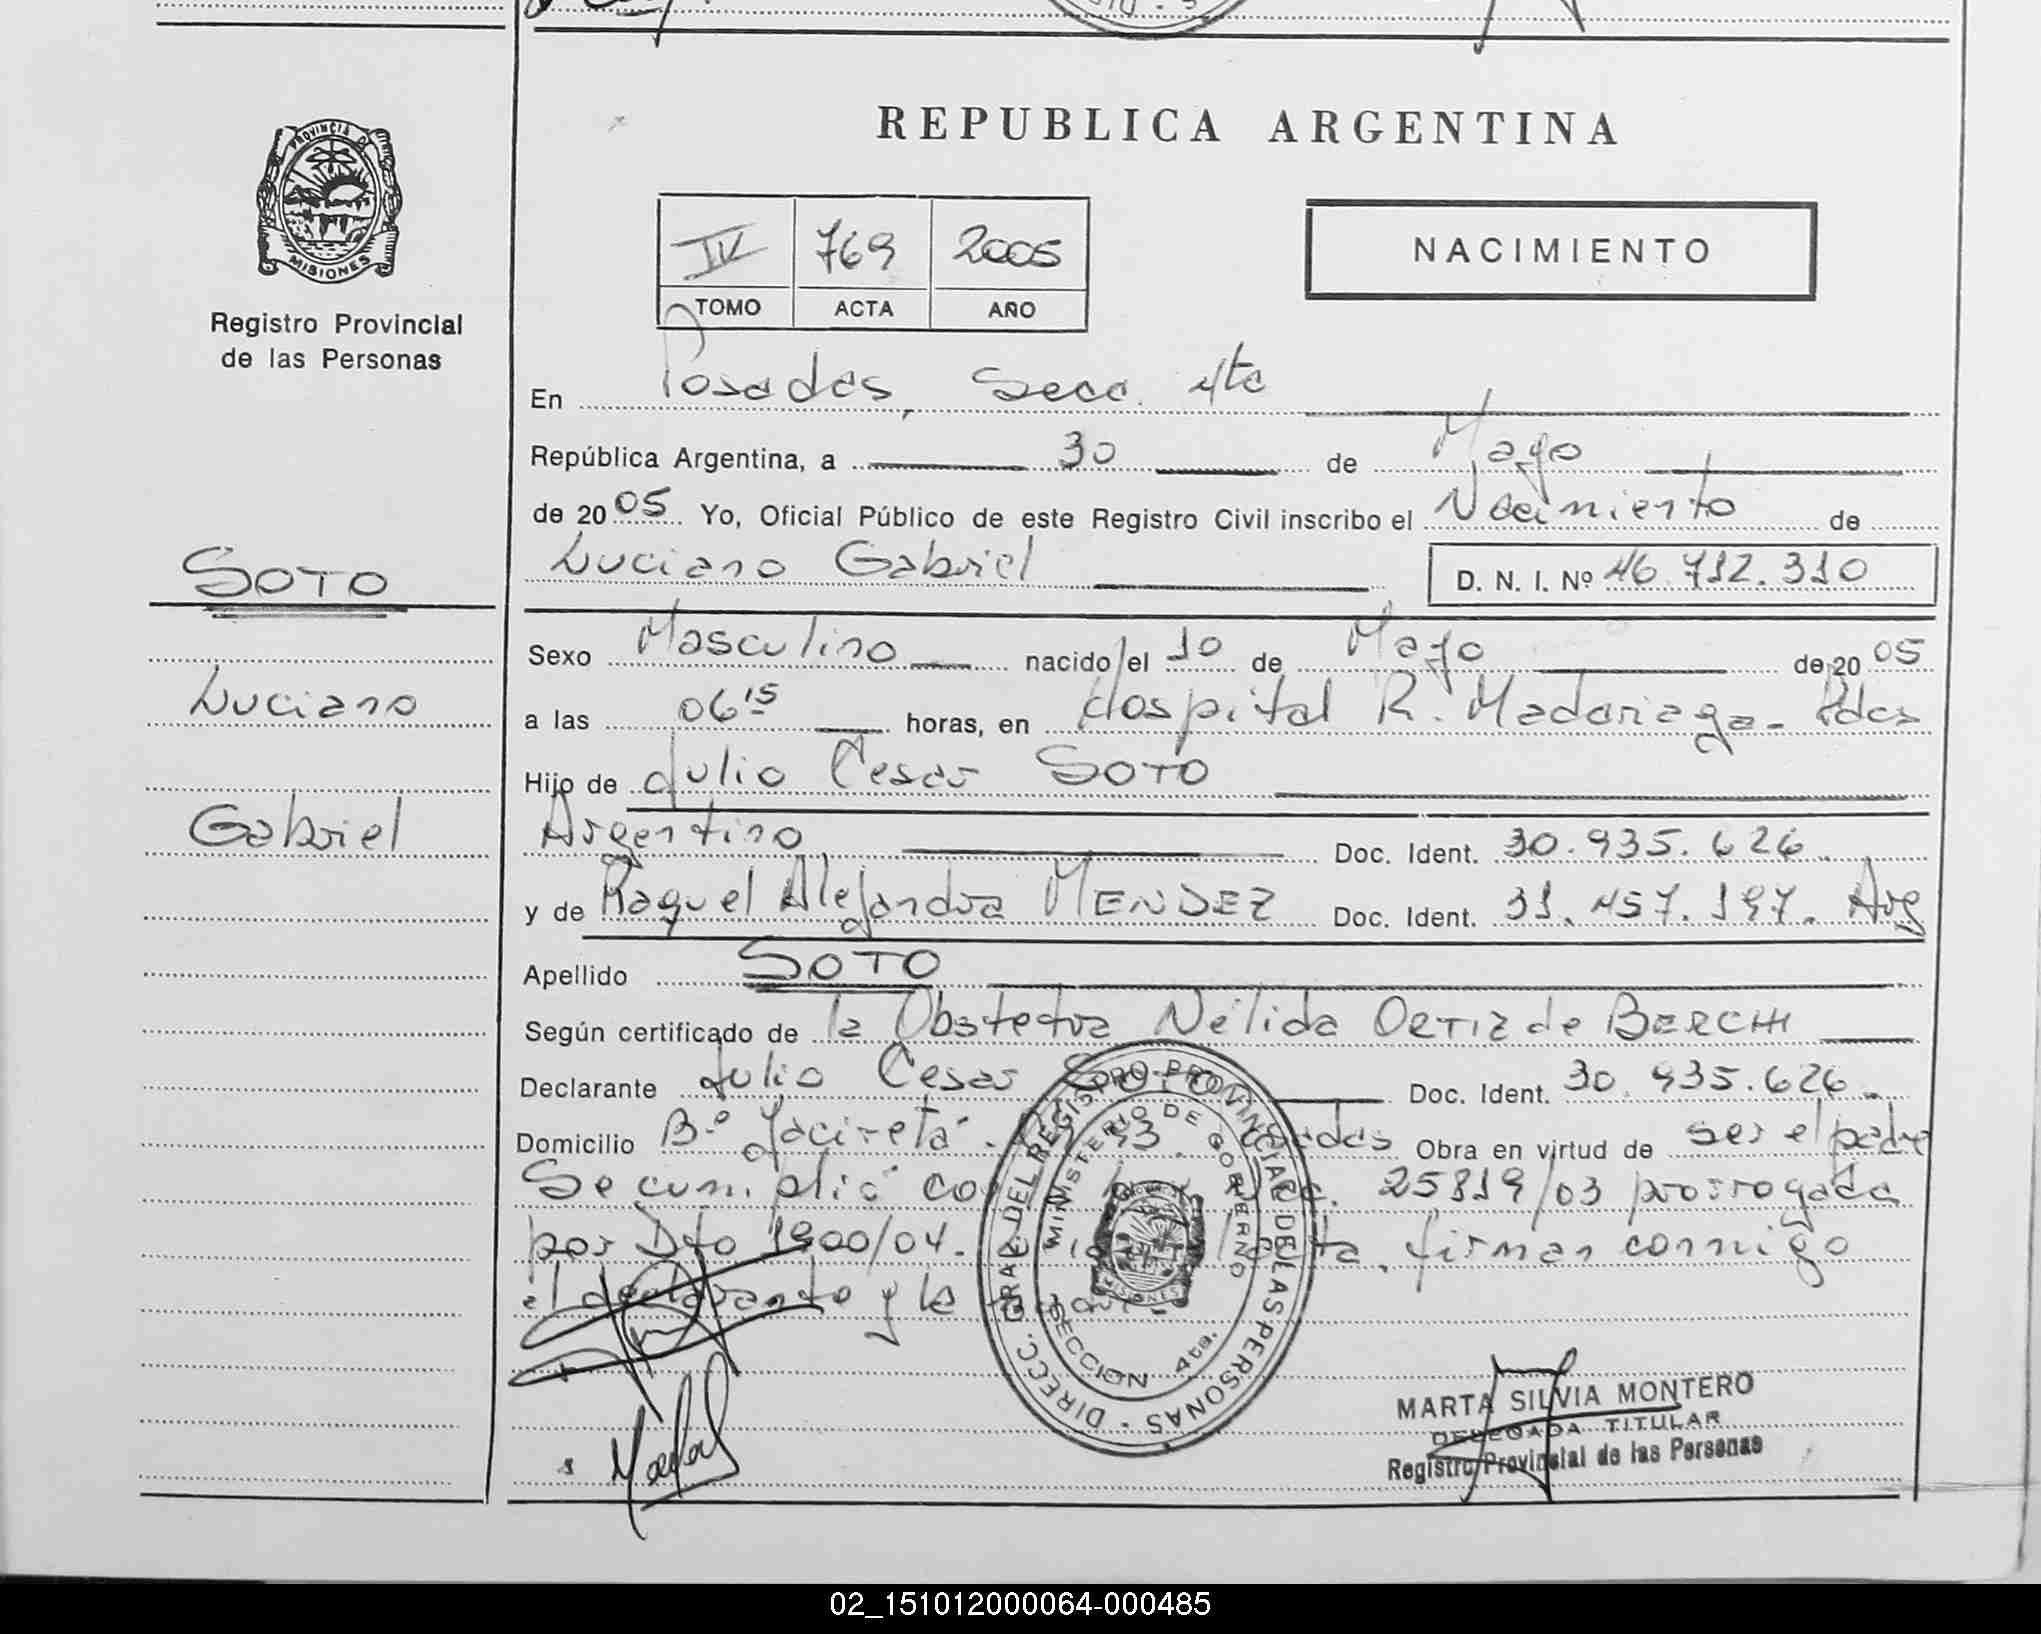 PROVINCIA DE
MISIONES
Registro Provincial
de las Personas
SOTO
Luciano
Gabriel
REPUBLICA ARGENTINA
IV 769 2005
TOMO ACTA AÑO
NACIMIENTO
En Posadas, Secc. 4ta
República Argentina, a 30 de Mayo
de 2005 Yo, Oficial Público de este Registro Civil inscribo el Nacimiento de
Luciano Gabriel D. N. I. Nº 46.712.310
Sexo Masculino nacido el 10 de Mayo de 2005
a las 06 15 horas, en Hospital R. Madariaga - Pdas
Hijo de Julio Cesar SOTO
Argentino Doc. Ident. 30.935.626
y de Raquel Alejandra MENDEZ Doc. Ident. 31.457.197. Arg
Apellido SOTO
Según certificado de la Obstetra Nélida ORTIZ de BERCHI
Declarante Julio Cesar SOTO Doc. Ident. 30.935.626
Domicilio Bº Yacireta. 33. Posadas Obra en virtud de ser el padre
Se cumplió con 25819/03 prorrogada
por Dto 1900/04. firman conmigo
el declarante y la
DIRECC. GRAL. DEL REGISTRO PROVINCIAL DE LAS PERSONAS
MINISTERIO DE GOBIERNO
SECCION 4ta.
MISIONES
MARTA SILVIA MONTERO
DELEGADA TITULAR
Registro Provincial de las Personas
02_151012000064-000485